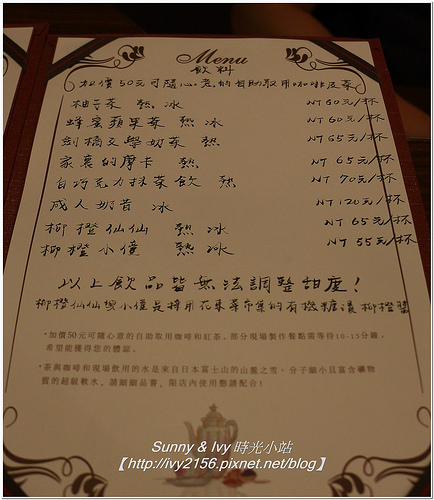 Menu
飲料
加價50元可隨心意的自助取用咖啡及茶
柚子茶 熱 冰 NT 60元/杯
蜂蜜蘋果茶 熱 冰 NT 60元/杯
劍橋文學奶茶 熱 NT 65元/杯
家裏的摩卡 熱 NT 65元/杯
白巧克力抹茶飲 熱 NT 70元/杯
成人奶昔 冰 NT 120元/杯
柳橙仙仙 熱 冰 NT 65元/杯
柳橙小僮 熱 冰 NT 55元/杯
以上飲品皆無法調整甜度！
柳橙仙仙與小僮是採用花東菜市集的有機糖漬柳橙醬
*加價50元可隨心意的自助取用咖啡和紅茶。部分現場製作餐點需等待10-15分鐘，
希望能獲得您的體諒。
*茶與咖啡和現場飲用的水是來自日本富士山的山麓之雪。分子細小且富含礦物
質的超級軟水。請細細品嘗，限店內使用懇請配合！
Sunny & Ivy 時光小站
【http://ivy2156.pixnet.net/blog】